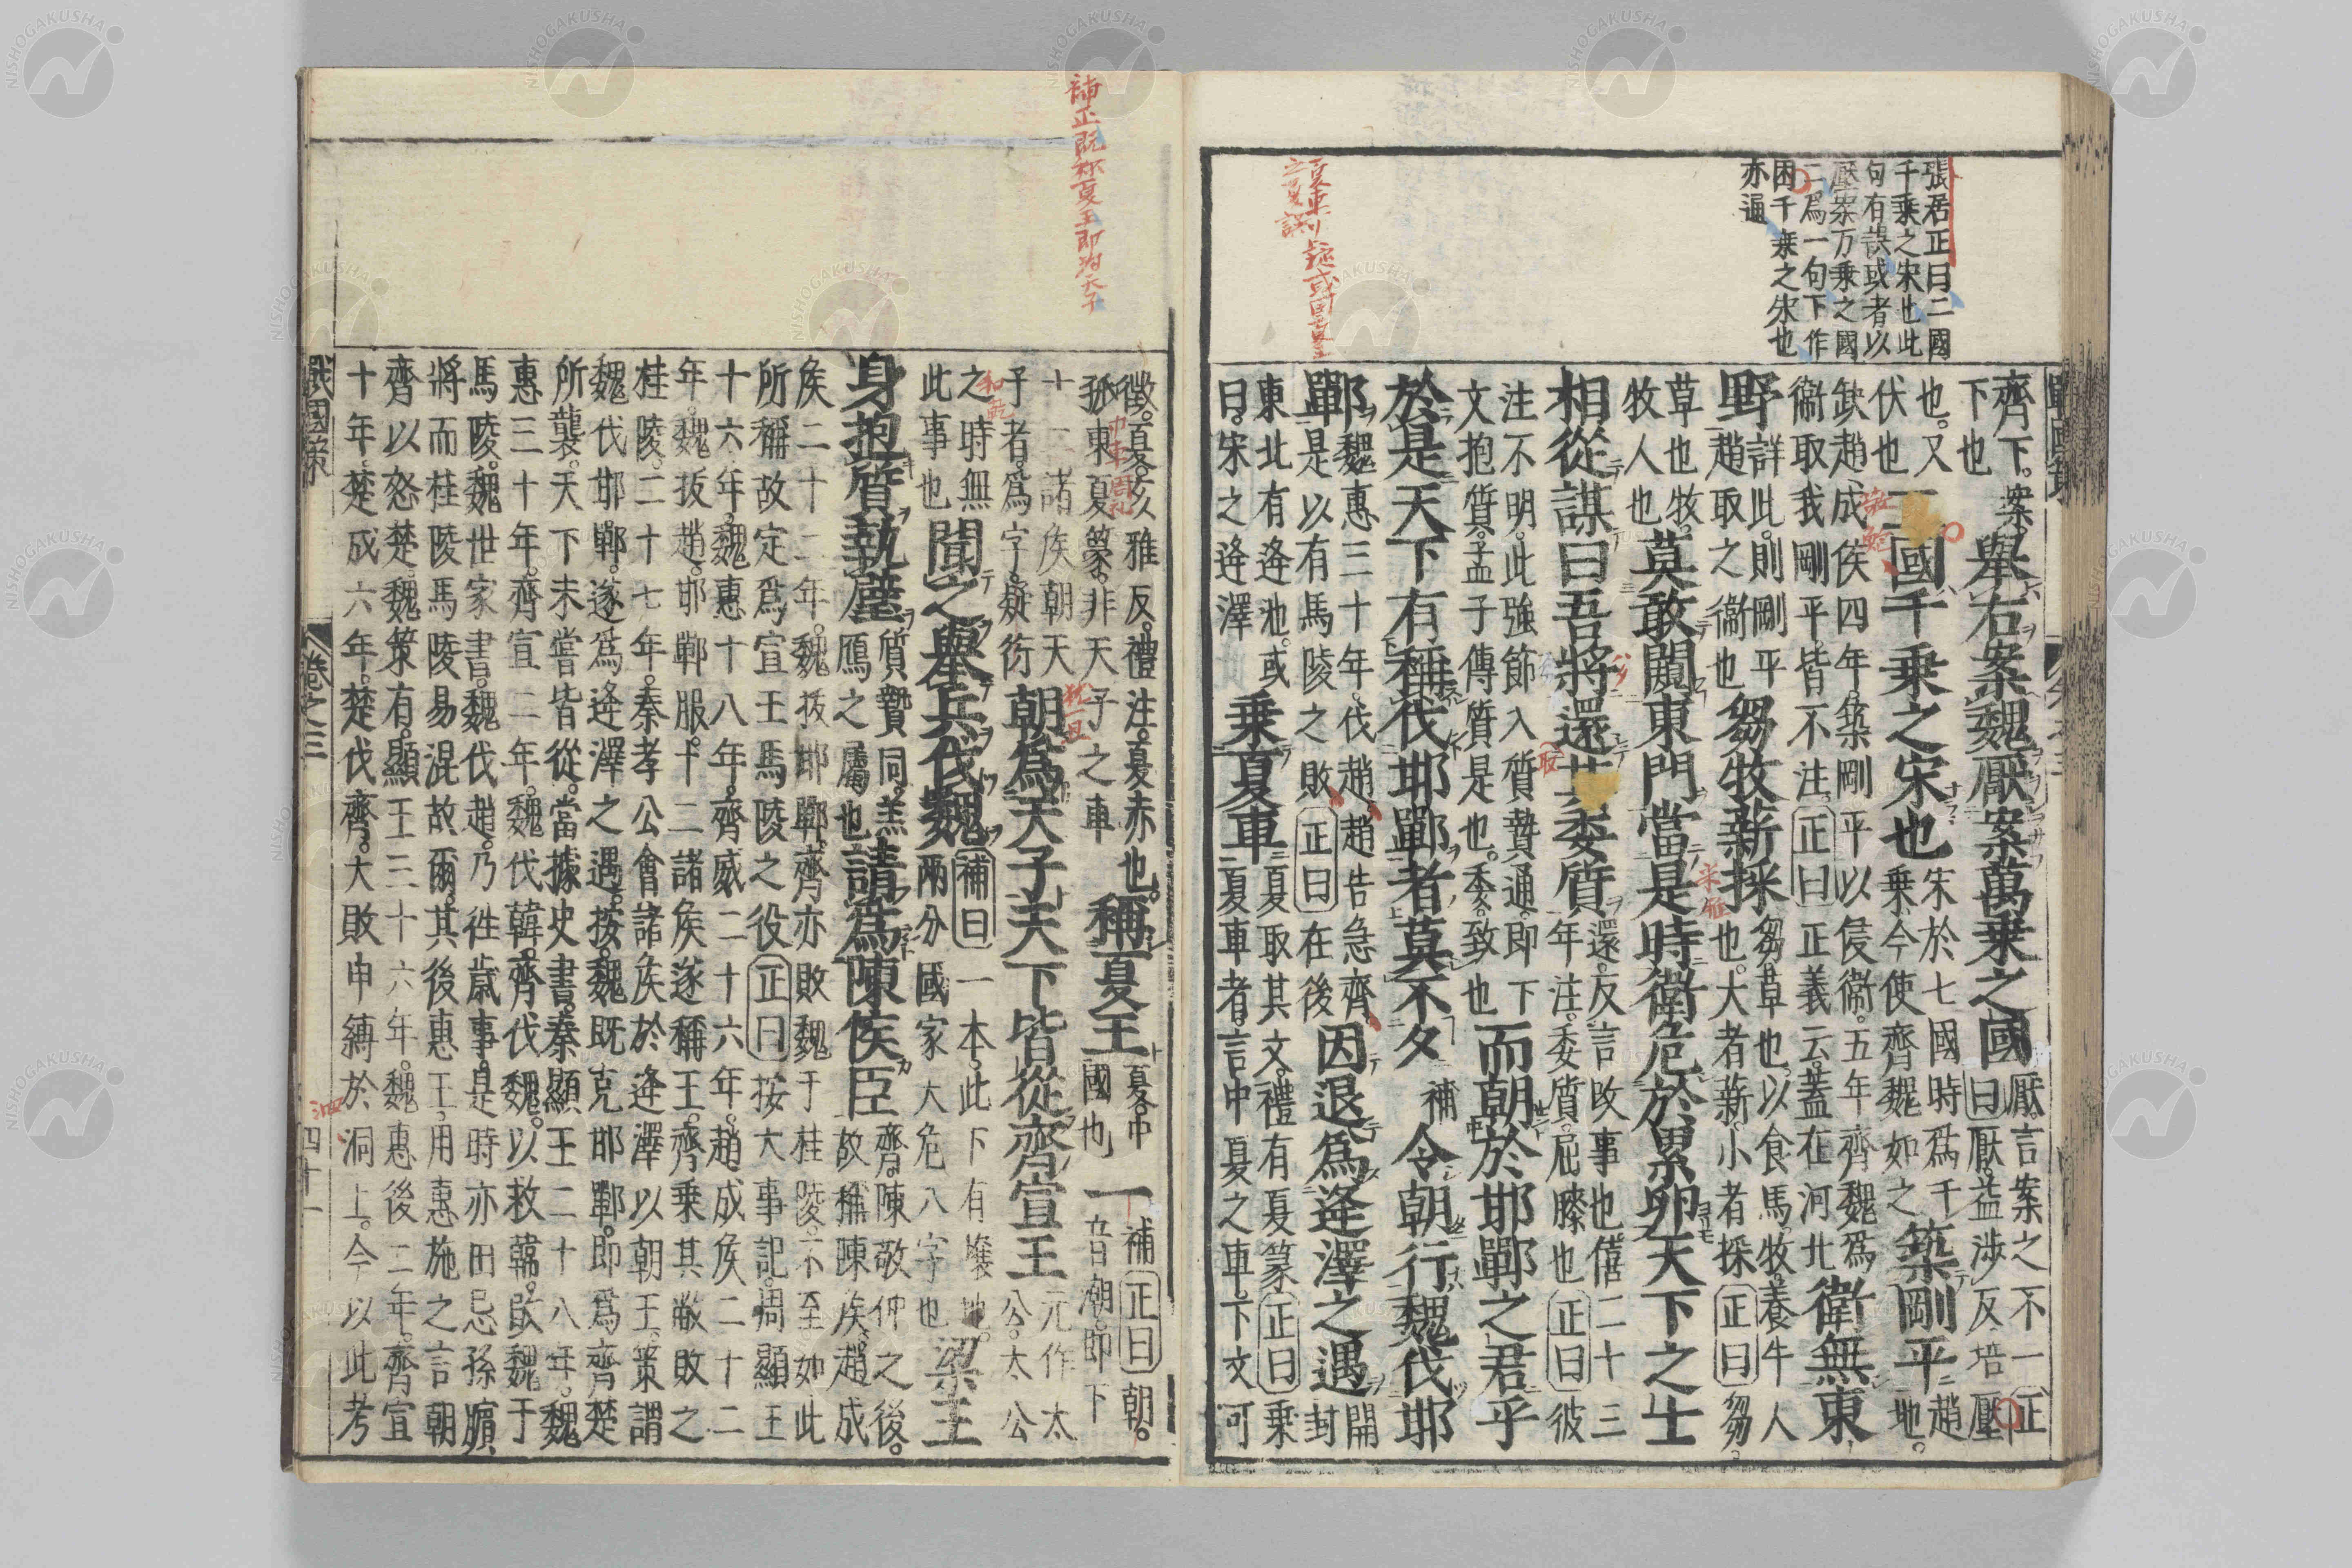 張居正曰二國
千乘之宋也此
句有誤或者以
壓案万乘之國
二爲一句下作
困千乘之宋也
亦通
戰國策
齊下。案。
下也
舉右案魏厭案萬乘之國
厭。言案之不一正
曰厭。益涉反。壓
也。又
伏也
二國千乘之宋也
宋於七國時爲千
乘今使齊魏如之
築剛平
趙
地。
缺趙成侯四年。築剛平以侵衞。五年齊魏爲
衞取我剛平。皆不注。正曰正義云。蓋在河北
衞無東
野
詳此。則剛平
趙取之衞也
芻牧薪採
芻。草也。以食馬。牧。養牛人
也。大者薪。小者採正曰芻。
草也。牧。
牧人也
莫敢闚東門當是時衞危於累卵天下之士
相從謀曰吾將還其委質
還。反言改事也僖二十三
年注。委質。屈膝也正曰彼
注不明。此強節入質贄通。即下
文抱質。孟子傳質是也。委。致也
而朝於邯鄲之君乎
於是天下有稱伐邯鄲者莫不夕
補
令朝行魏伐邯
鄲
魏惠三十年。伐趙趙告急齊
是以有馬陵之敗正曰在後
因退爲逢澤之遇
開
封
東北有逢池。或
曰。宋之逢澤
乘夏車
夏取其文。禮有夏篆正曰乘
夏車者。言中夏之車。下文可
補正既称夏王即為天子
徵。夏。亥雅反。禮注。夏赤也。
孤東夏篆。非天子之車
稱夏王
夏。中
國也
一
補正曰朝。
音潮。即下
十二諸侯朝天
子者。爲字。疑衍
朝爲天子天下皆從齊宣王
元作太
公。太公
之時無
此事也
聞之舉兵伐魏
補曰一本。此下有壤地。
兩分國家大危八字也
梁王
身抱質執璧
質贄同。羔
鴈之屬也
請爲陳侯臣
齊。陳敬仲之後。
故稱陳侯。趙成
侯二十二年。魏拔邯鄲。齊亦敗魏于桂陵。不至如此
所稱故定爲宣王馬陵之役正曰按大事記。周顯王
十六年。魏惠十八年。齊威二十六年。趙成侯二十二
年。魏拔趙。邯鄲服。十二諸侯遂稱王。齊乘其敝敗之
桂陵。二十七年。秦孝公會諸侯於逢澤以朝王。策謂
魏伐邯鄲。遂爲逢澤之遇。按。魏既克邯鄲。即爲齊楚
所襲。天下未嘗皆從。當據史書。秦顯王二十八年。魏
惠三十年。齊宣二年。魏伐韓。齊伐魏。以救韓。敗魏于
馬陵。魏世家書。魏伐趙。乃徃歲事。是時亦田忌孫臏
將而桂陵馬陵易混故爾。其後惠王。用惠施之言朝
齊以怒楚。魏策有。顯王三十六年。魏惠後二年。齊宣
十年楚成六年。楚伐齊。大敗申縛於泗上。今以此考
戰國策
卷之三
四十一